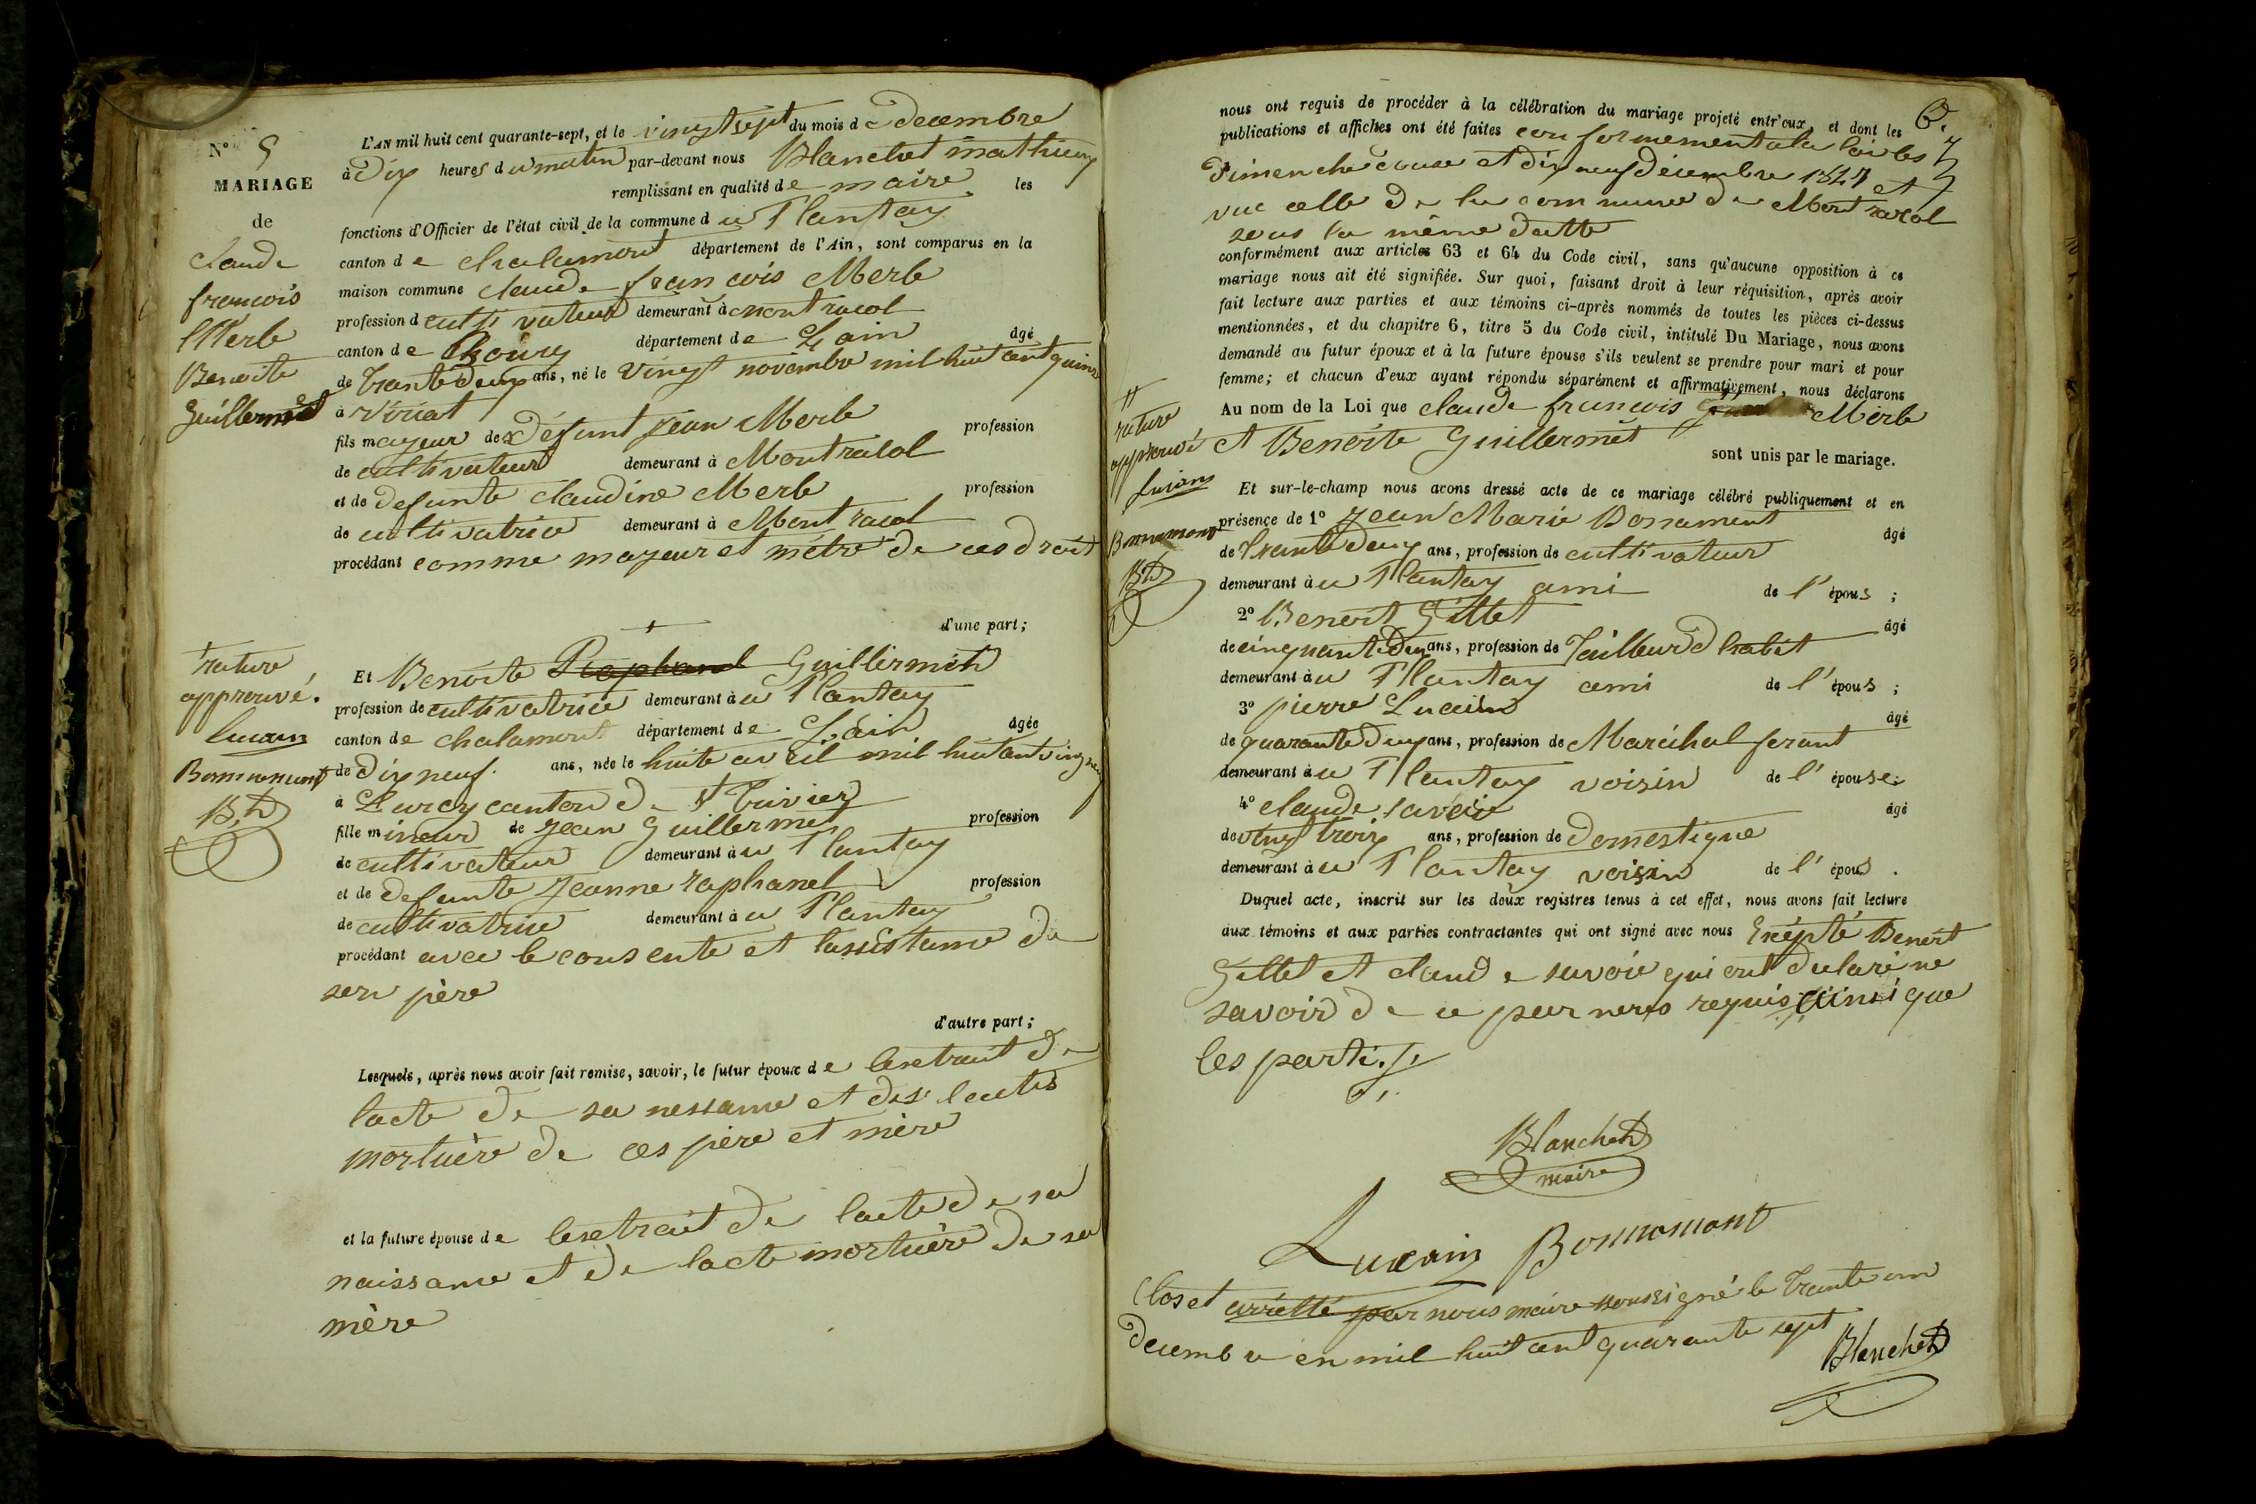 N° 5
MARIAGE
de
Claude
francois
Merle
Benoite
Guillermet
L'AN mil huit cent quarante-sept, et le vingt sept du mois de decembre
à Dix heures du matin par-devant nous Blanchet mathieu
remplissant en qualité de maire les
fonctions d'Officier de l'état civil de la commune du Plantay
canton de chalamont département de l'Ain, sont comparus en la
maison commune claude francois Merle
profession de cultivateur demeurant à montracol
canton de Bourg département de Lain âgé
de trante deux ans, né le vingt novembre mil huit cent quinze
à Viriat
fils mayeur de défunt jean Merle profession
de cultivateur demeurant à Montracol
et de defunte claudine Merle profession
de cultivatrice demeurant à Montracol
procédant comme mayeur et mètre de ces droit
d'une part;
rature
approuvé.
Lucain
Bonnemont
B,t
Et Benoite Raphanel Guillermet
profession de cultivatrice demeurant au Plantay
canton de chalamont département de Lain âgée
de Dix neuf. ans, née le huite avril mil huit cent vingt neuf
à Lurcy canton de St Trivier
fille mineur de jean Guillermet profession
de cultivateur demeurant au Plantay
et de defunte jeanne raphanel profession
de cultivatrice demeurant au Plantay
procédant avec le consente et lassistance de
son père
d'autre part;
Lesquels, après nous avoir fait remise, savoir, le futur époux de lextrait de
lacte de sa nessance et des lactes
mortuère de ces père et mère
et la future épouse de lextrait de lacte de sa
naissance et de lacte mortuère de sa
mère
6.
nous ont requis de procéder à la célébration du mariage projeté entr'eux, et dont les
publications et affiches ont été faites conformement a la loi les
Dimenche douse et dix neuf décembre 1847 et
vue celle de la commune de Montracol
sous la même datte
conformément aux articles 63 et 64 du Code civil, sans qu'aucune opposition à ce
mariage nous ait été signifiée. Sur quoi, faisant droit à leur réquisition, après avoir
fait lecture aux parties et aux témoins ci-après nommés de toutes les pièces ci-dessus
mentionnées, et du chapitre 6, titre 5 du Code civil, intitulé Du Mariage, nous avons
demandé au futur époux et à la future épouse s'ils veulent se prendre pour mari et pour
femme; et chacun d'eux ayant répondu séparément et affirmativement, nous déclarons
Au nom de la Loi que claude francois Merle
et Benoite Guillermet
sont unis par le mariage.
rature
approuvé
Lucain
Bonnemont
B,t
Et sur-le-champ nous avons dressé acte de ce mariage célébré publiquement et en
présence de 1° jean Marie Bonnament âgé
de trante deux ans, profession de cultivateur
demeurant au Plantay ami de l'épous ;
2° Benoit Gillet âgé
de cinquante deux ans, profession de Tailleur d habit
demeurant au Plantay ami de l'épous ;
3° pierre Lucain âgé
de quarante deux ans, profession de Maréchal ferant
demeurant au Plantay voisin de l'épouse;
4° claude savoie âgé
de vingt trois ans, profession de domestique
demeurant au Plantay voisin de l'épous .
Duquel acte, inscrit sur les deux registres tenus à cet effet, nous avons fait lecture
aux témoins et aux parties contractantes qui ont signé avec nous Exépté Benoit
Gillet et claude savoie qui ont declaré ne
savoir de ce par nous requis ainsi que
les parti.
Blanchet
maire
Lucain Bonnomont
Clos et arretté par nous maire soussigné le trante un
decembre en mil huit cent quarante sept
Blanchet